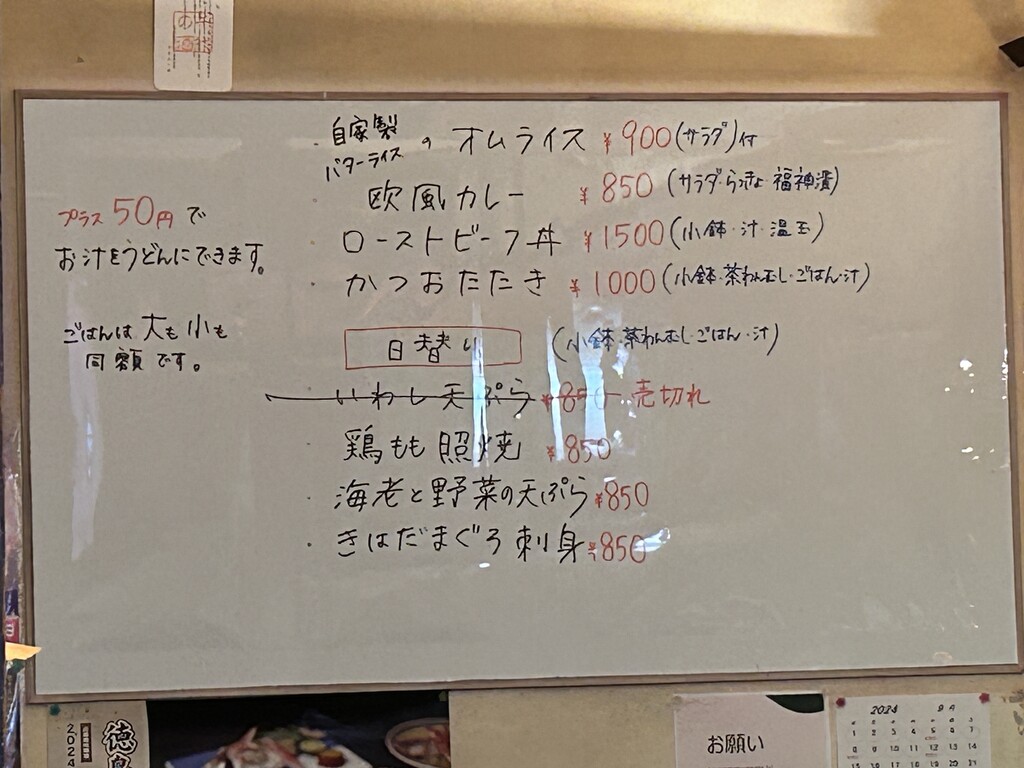 自家製
バターライス の オムライス ¥900 (サラダ)付
欧風カレー ¥850 (サラダ・らっきょ・福神漬)
・ローストビーフ丼 ¥1500 (小鉢・汁・温玉)
・かつおたたき ¥1000 (小鉢・茶わんむし・ごはん・汁)
プラス50円で
お汁をうどんにできます。
ごはんは大も小も
同額です。
日替り (小鉢・茶わんむし・ごはん・汁)
・いわし天ぷら ¥850 売切れ
・鶏もも照焼 ¥850
・海老と野菜の天ぷら ¥850
・きはだまぐろ刺身 ¥850
2024
お願い